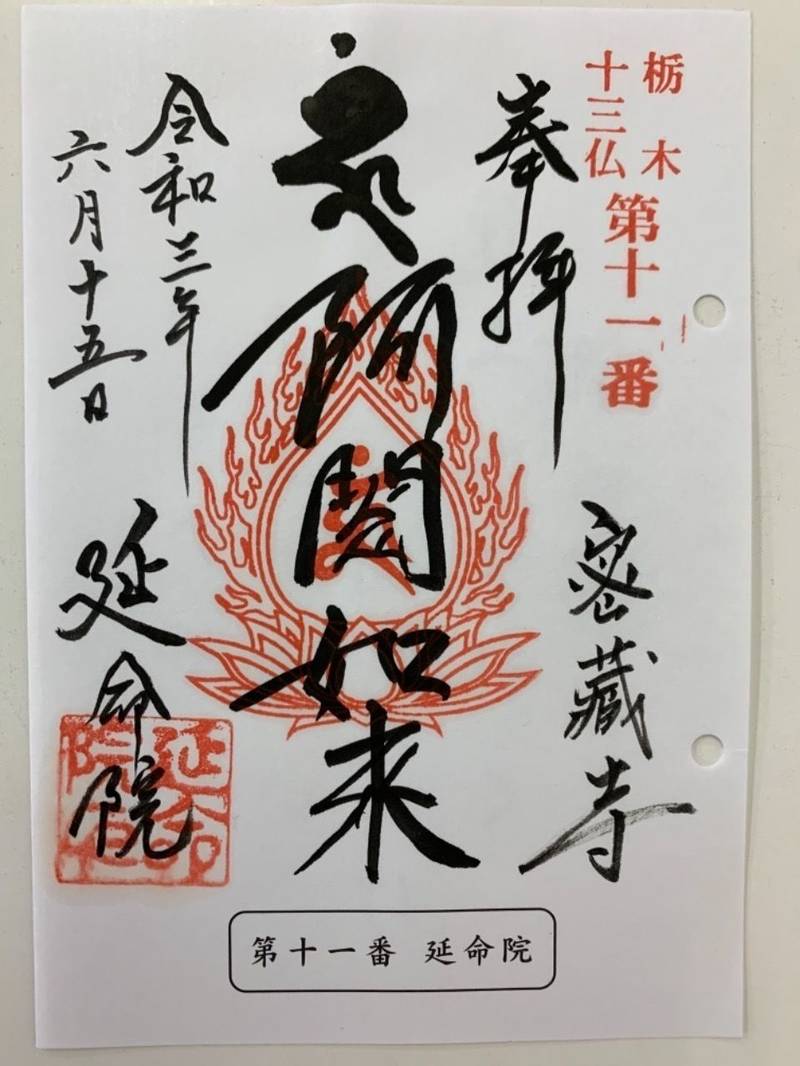 栃木
十三仏
第十一番
奉拝
密蔵寺
阿閦如来
令和三年
六月十五日
延命院
第十一番 延命院